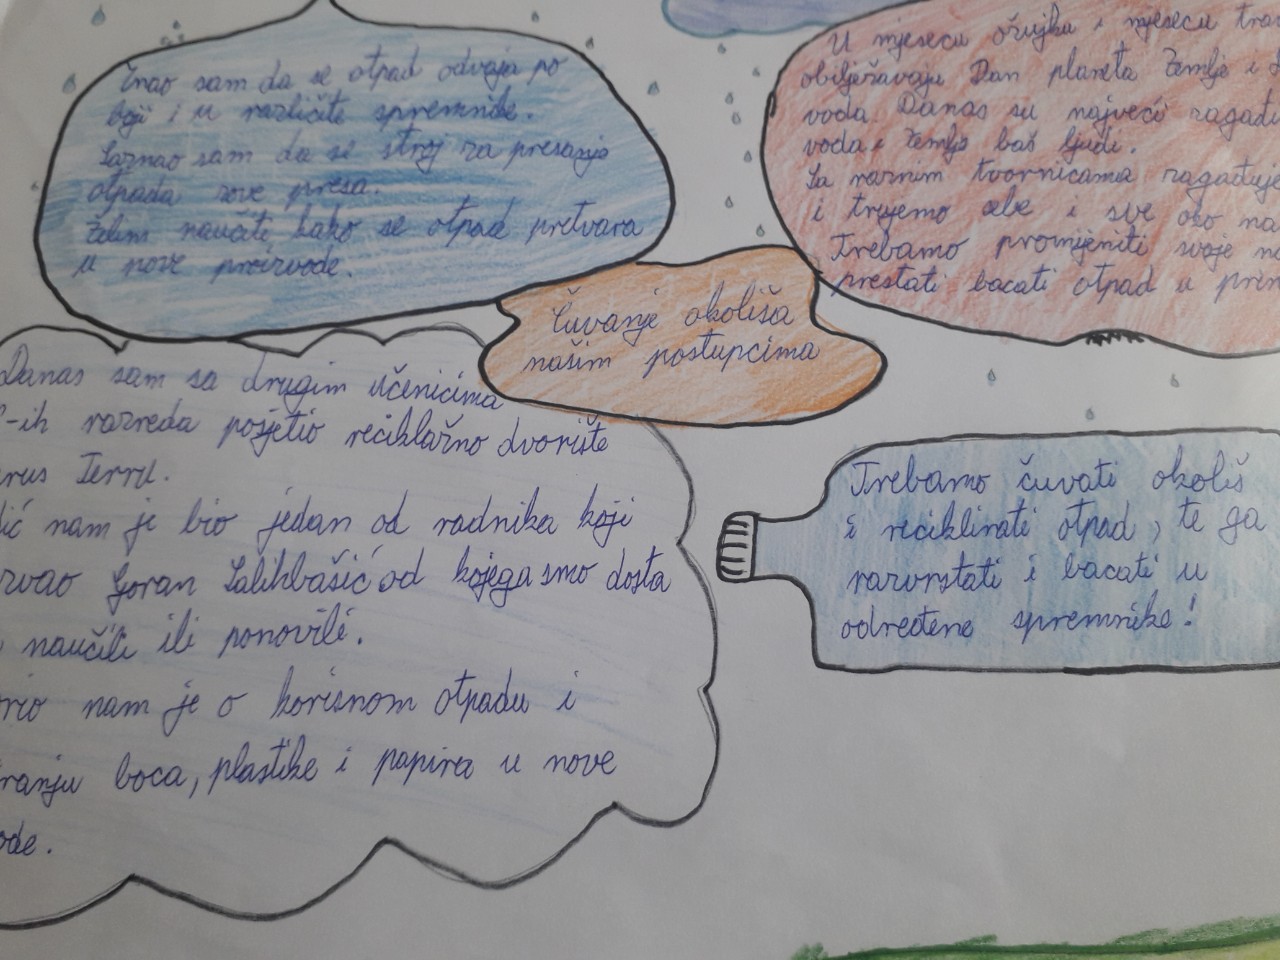 Znao sam da se otpad odvaja po
boji i u različite spremnike.
Saznao sam da se stroj za presanje
otpada zove presa.
Želim naučiti kako se otpad pretvara
u nove proizvode.
U mjesecu ožujku i mjesecu
obilježavaju Dan planeta Zemlje i
voda. Danas su najveći
voda i Zemlje baš ljudi.
Sa raznim tvornicama
i trujemo sebe i sve oko
Trebamo promijeniti svoje
prestati bacati otpad u
Čuvanje okoliša
našim postupcima
Danas sam sa drugim učenicima
-ih razreda posjetio reciklažno dvorište
Terru.
nam je bio jedan od radnika koji
Goran Salihbašić od kojega smo dosta
naučili ili ponovili.
nam je o korisnom otpadu i
boca, plastike i papira u nove
Trebamo čuvati okoliš
i reciklirati otpad, te ga
razvrstati i bacati u
određene spremnike!